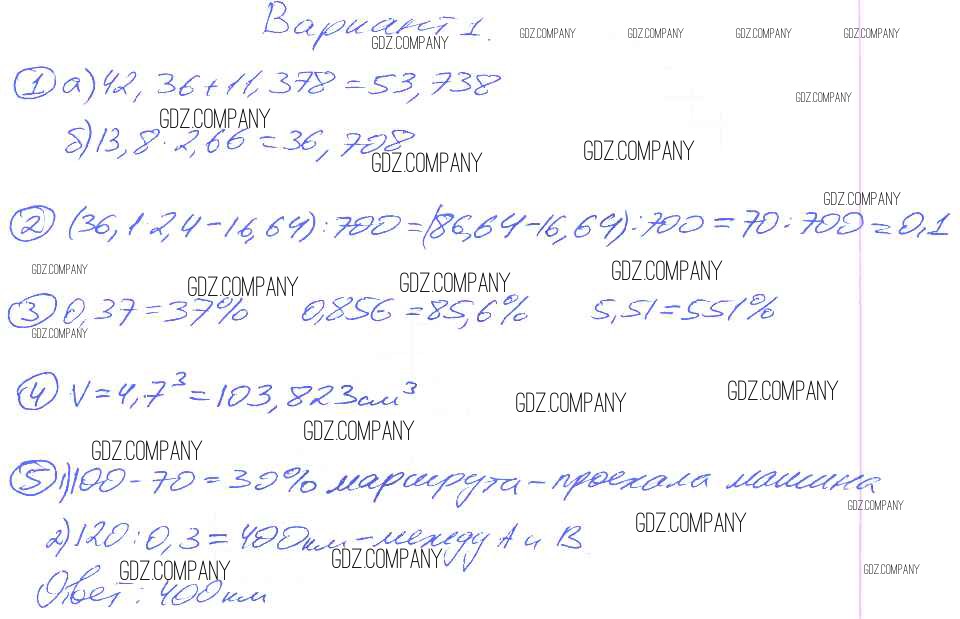 Вариант 1.
GDZ.COMPANY GDZ.COMPANY GDZ.COMPANY GDZ.COMPANY GDZ.COMPANY
1 а) 42,36+11,378=53,738
GDZ.COMPANY GDZ.COMPANY
б) 13,8·2,66=36,708
GDZ.COMPANY GDZ.COMPANY
GDZ.COMPANY
2 (36,1·2,4-16,64):700=(86,64-16,64):700=70:700=0,1
GDZ.COMPANY GDZ.COMPANY GDZ.COMPANY GDZ.COMPANY
3 0,37=37% 0,856=85,6% 5,51=551%
GDZ.COMPANY
4 V=4,7³=103,823см³
GDZ.COMPANY GDZ.COMPANY
GDZ.COMPANY GDZ.COMPANY
5 1) 100-70=30% маршрута - проехала машина
GDZ.COMPANY GDZ.COMPANY
2) 120:0,3=400км - между А и В
GDZ.COMPANY GDZ.COMPANY GDZ.COMPANY
Ответ: 400км